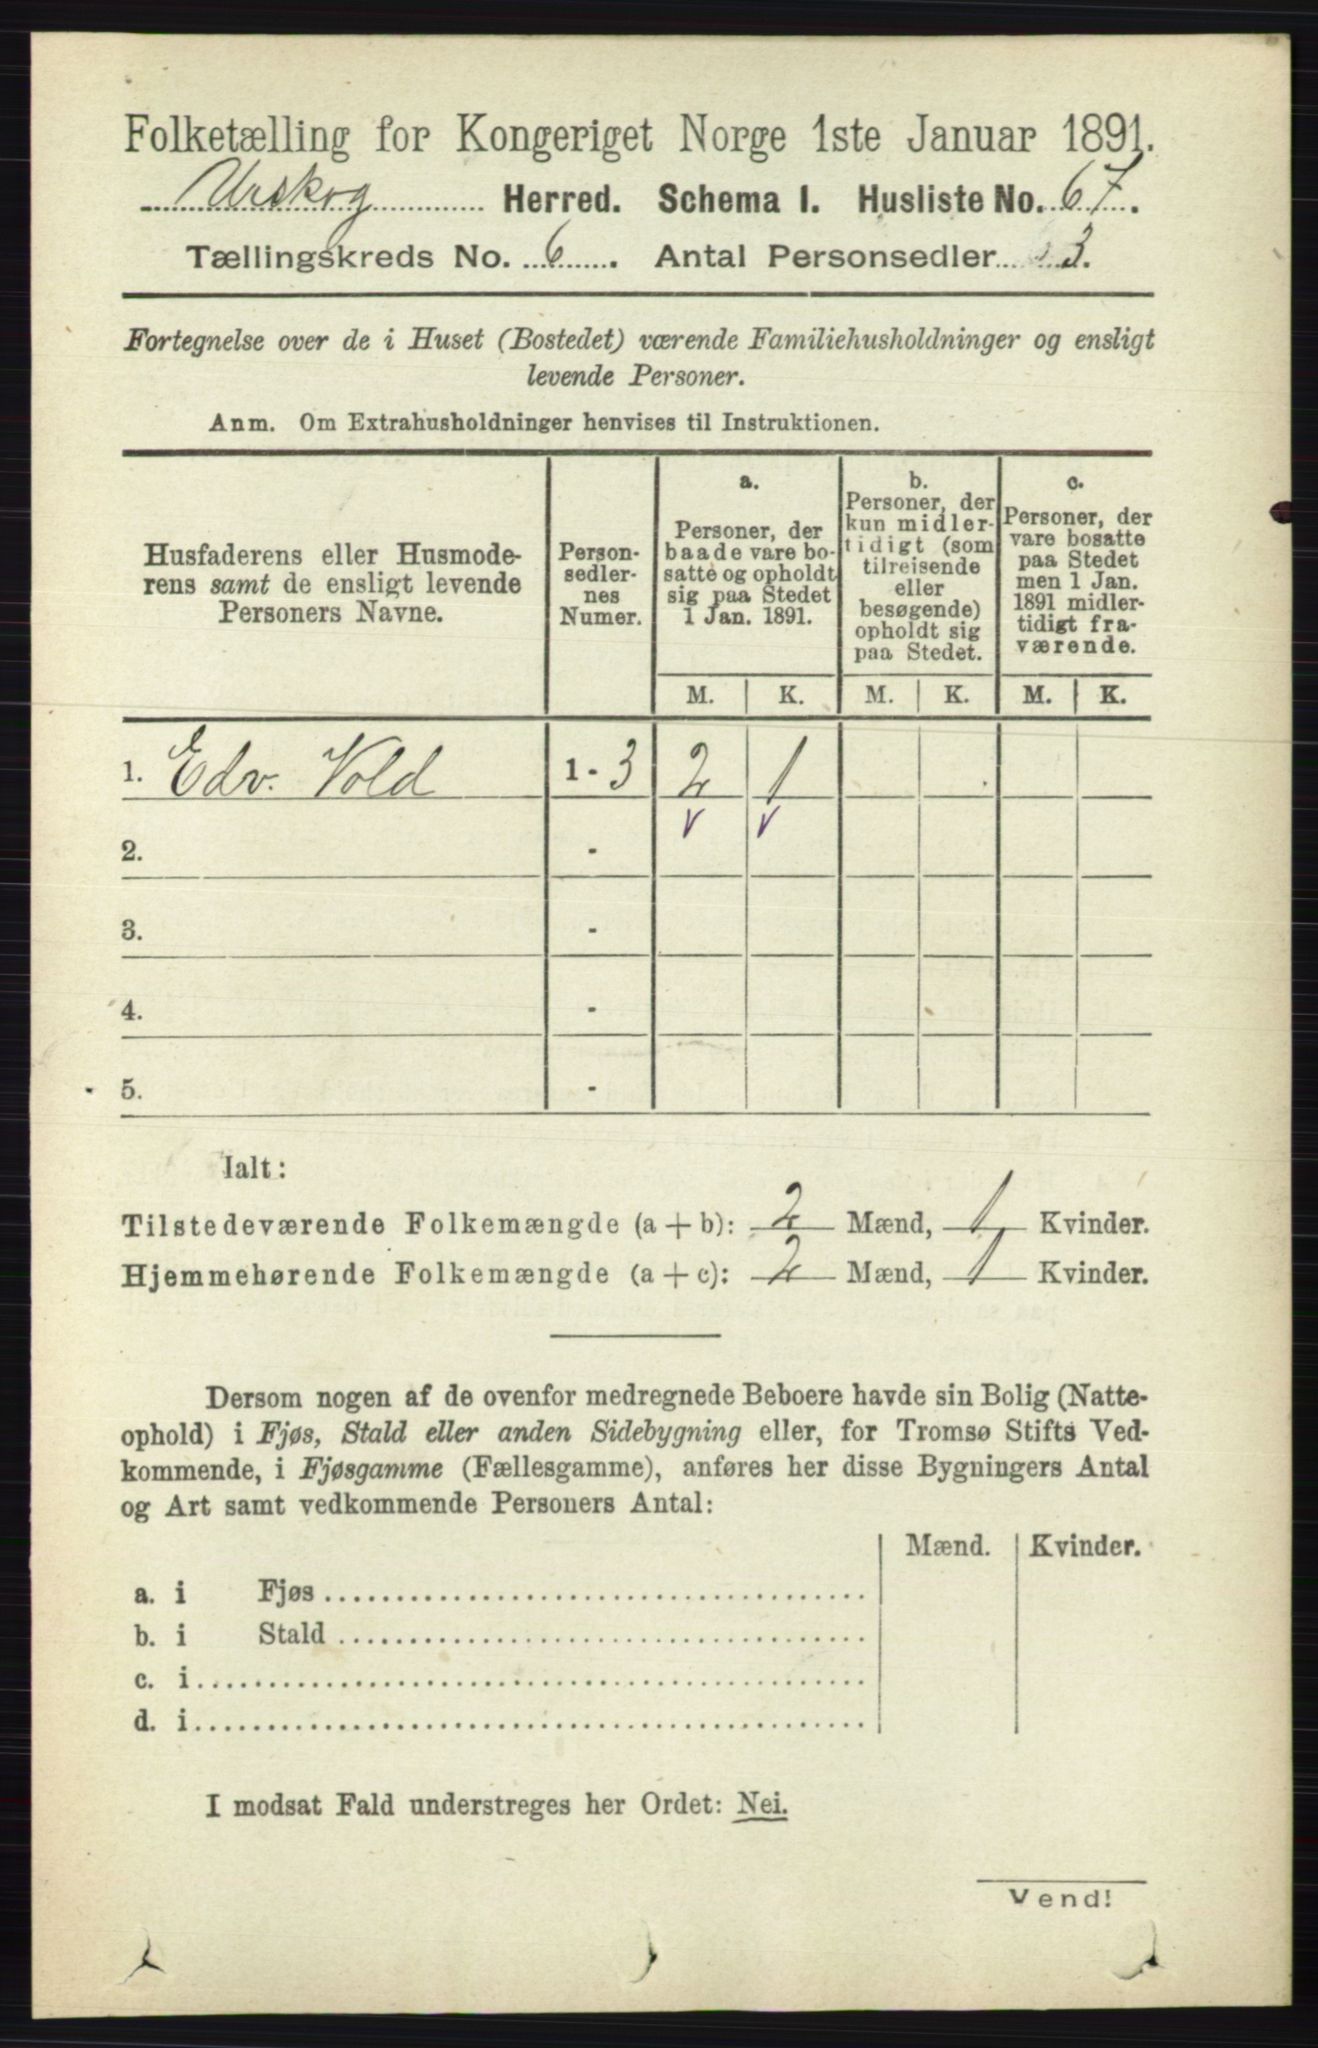 Folketælling for Kongeriget Norge 1ste Januar 1891.
Urskog Herred. Schema I. Husliste No. 67.
Tællingskreds No. 6. Antal Personsedler 3.
Fortegnelse over de i Huset (Bostedet) værende Familiehusholdninger og ensligt
levende Personer.
Anm. Om Extrahusholdninger henvises til Instruktionen.
Husfaderens eller Husmode-
rens samt de ensligt levende
Personers Navne.
Person-
sedler-
nes
Numer.
a.
Personer, der
baade vare bo-
satte og opholdt
sig paa Stedet
1 Jan. 1891.
b.
Personer, der
kun midler-
tidigt (som
tilreisende
eller
besøgende)
opholdt sig
paa Stedet.
c.
Personer, der
vare bosatte
paa Stedet
men 1 Jan.
1891 midler-
tidigt fra-
værende.
M. K. M. K. M. K.
1. Edv. Vold 1 - 3 2 1
2. -
3. -
4. -
5. -
Ialt:
Tilstedeværende Folkemængde (a + b): 2 Mænd, 1 Kvinder.
Hjemmehørende Folkemængde (a + c): 2 Mænd, 1 Kvinder.
Dersom nogen af de ovenfor medregnede Beboere havde sin Bolig (Natte-
ophold) i Fjøs, Stald eller anden Sidebygning eller, for Tromsø Stifts Ved-
kommende, i Fjøsgamme (Fællesgamme), anføres her disse Bygningers Antal
og Art samt vedkommende Personers Antal:
Mænd. Kvinder.
a. i Fjøs
b. i Stald
c. i
d. i
I modsat Fald understreges her Ordet: Nei.
Vend!